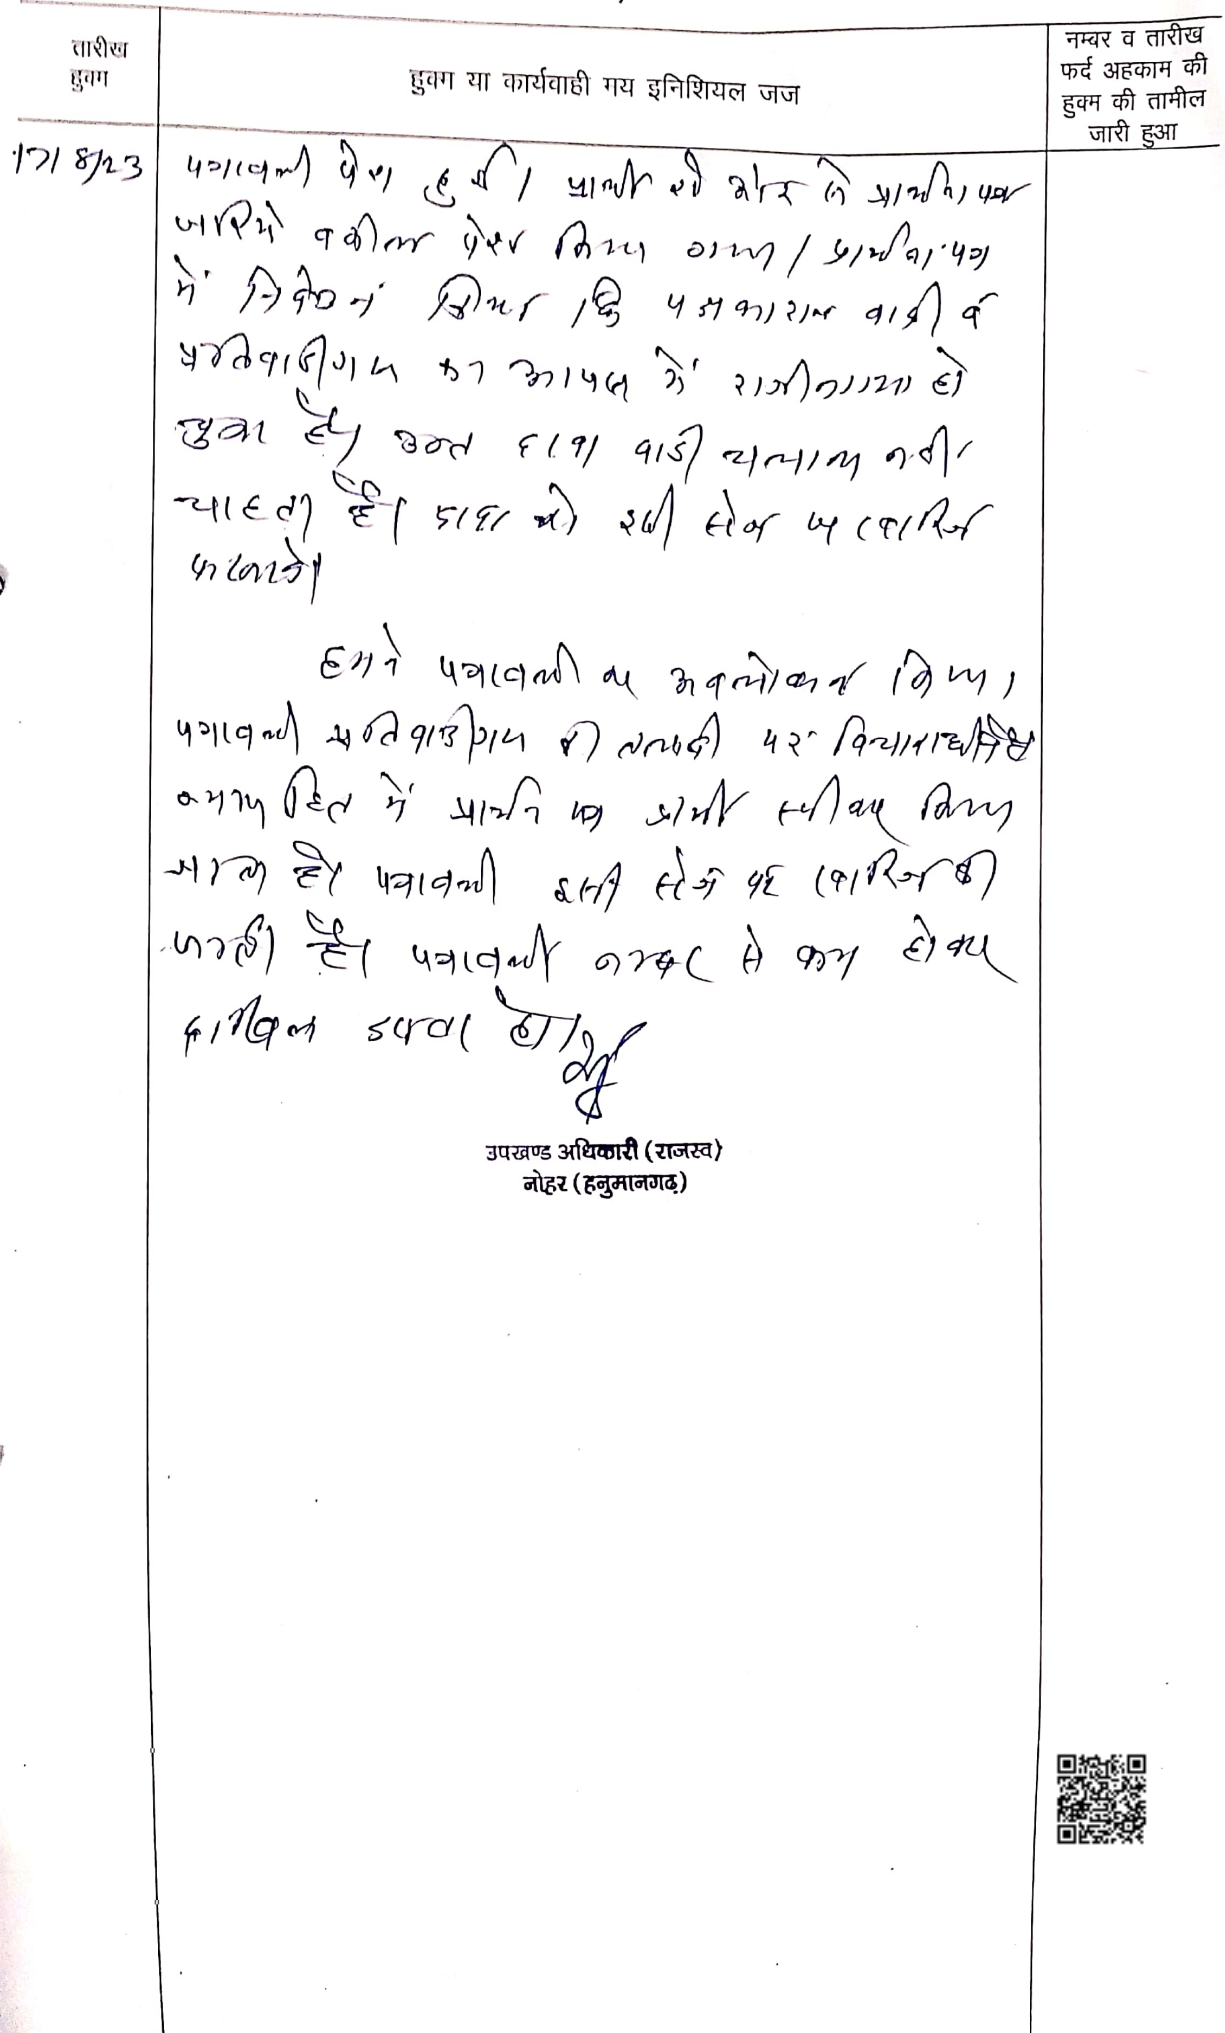 तारीख
हुक्म
हुक्म या कार्यवाही मय इनिशियल जज
नम्बर व तारीख
फर्द अहकाम की
हुक्म की तामील
जारी हुआ
17/8/23
पत्रावली पेश हुई। प्रार्थी की ओर से प्रार्थना पत्र
जरिये वकील पेश किया गया। प्रार्थना पत्र
में निवेदन किया कि पक्षकारान वादी व
प्रतिवादीगण का आपस में राजीनामा हो
चुका है। उक्त दावा वादी चलाना नहीं
चाहता है। दावा को इसी स्टेज पर खारिज
फरमावे।
हमने पत्रावली का अवलोकन किया।
पत्रावली प्रतिवादीगण की तलबी पर विचाराधीन है
न्याय हित में प्रार्थना पत्र प्रार्थी स्वीकार किया
जाता है। पत्रावली इसी स्टेज पर खारिज की
जाती है। पत्रावली नम्बर से कम होकर
दाखिल दफ्तर हो।
उपखण्ड अधिकारी (राजस्व)
नोहर (हनुमानगढ़)